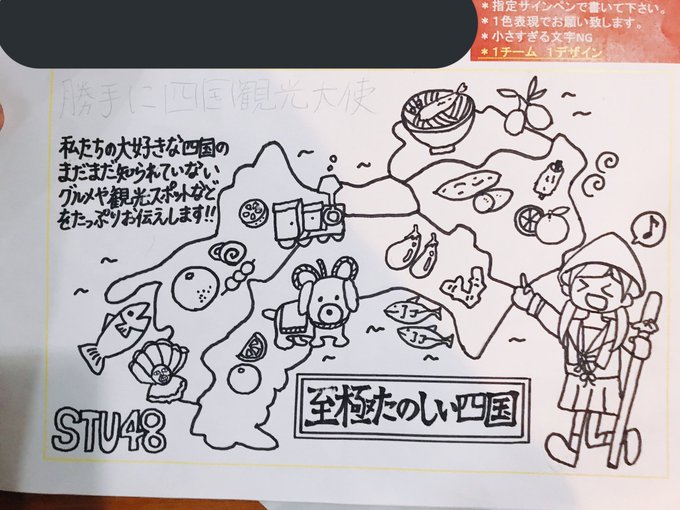 ＊指定サインペンで書いて下さい。
＊1色表現でお願い致します。
＊小さすぎる文字NG
＊1チーム 1デザイン
勝手に四国観光大使
私たちの大好きな四国の
まだまだ知られていない
グルメや観光スポットなど
をたっぷりお伝えします!!
至極たのしい四国
STU48